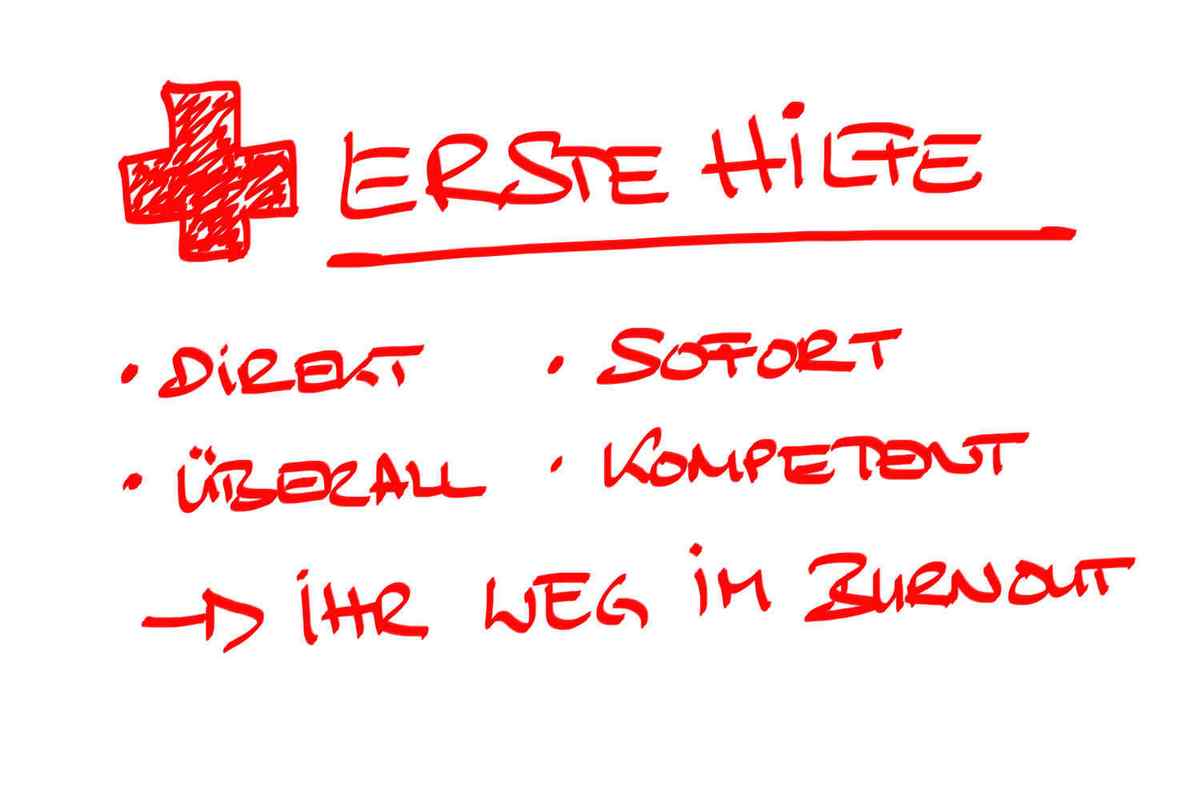 ERSTE HiLFE
• DiREKT • SOFORT
• ÜBERALL • KOMPETENT
→ iHR WEG iM BURNOUT